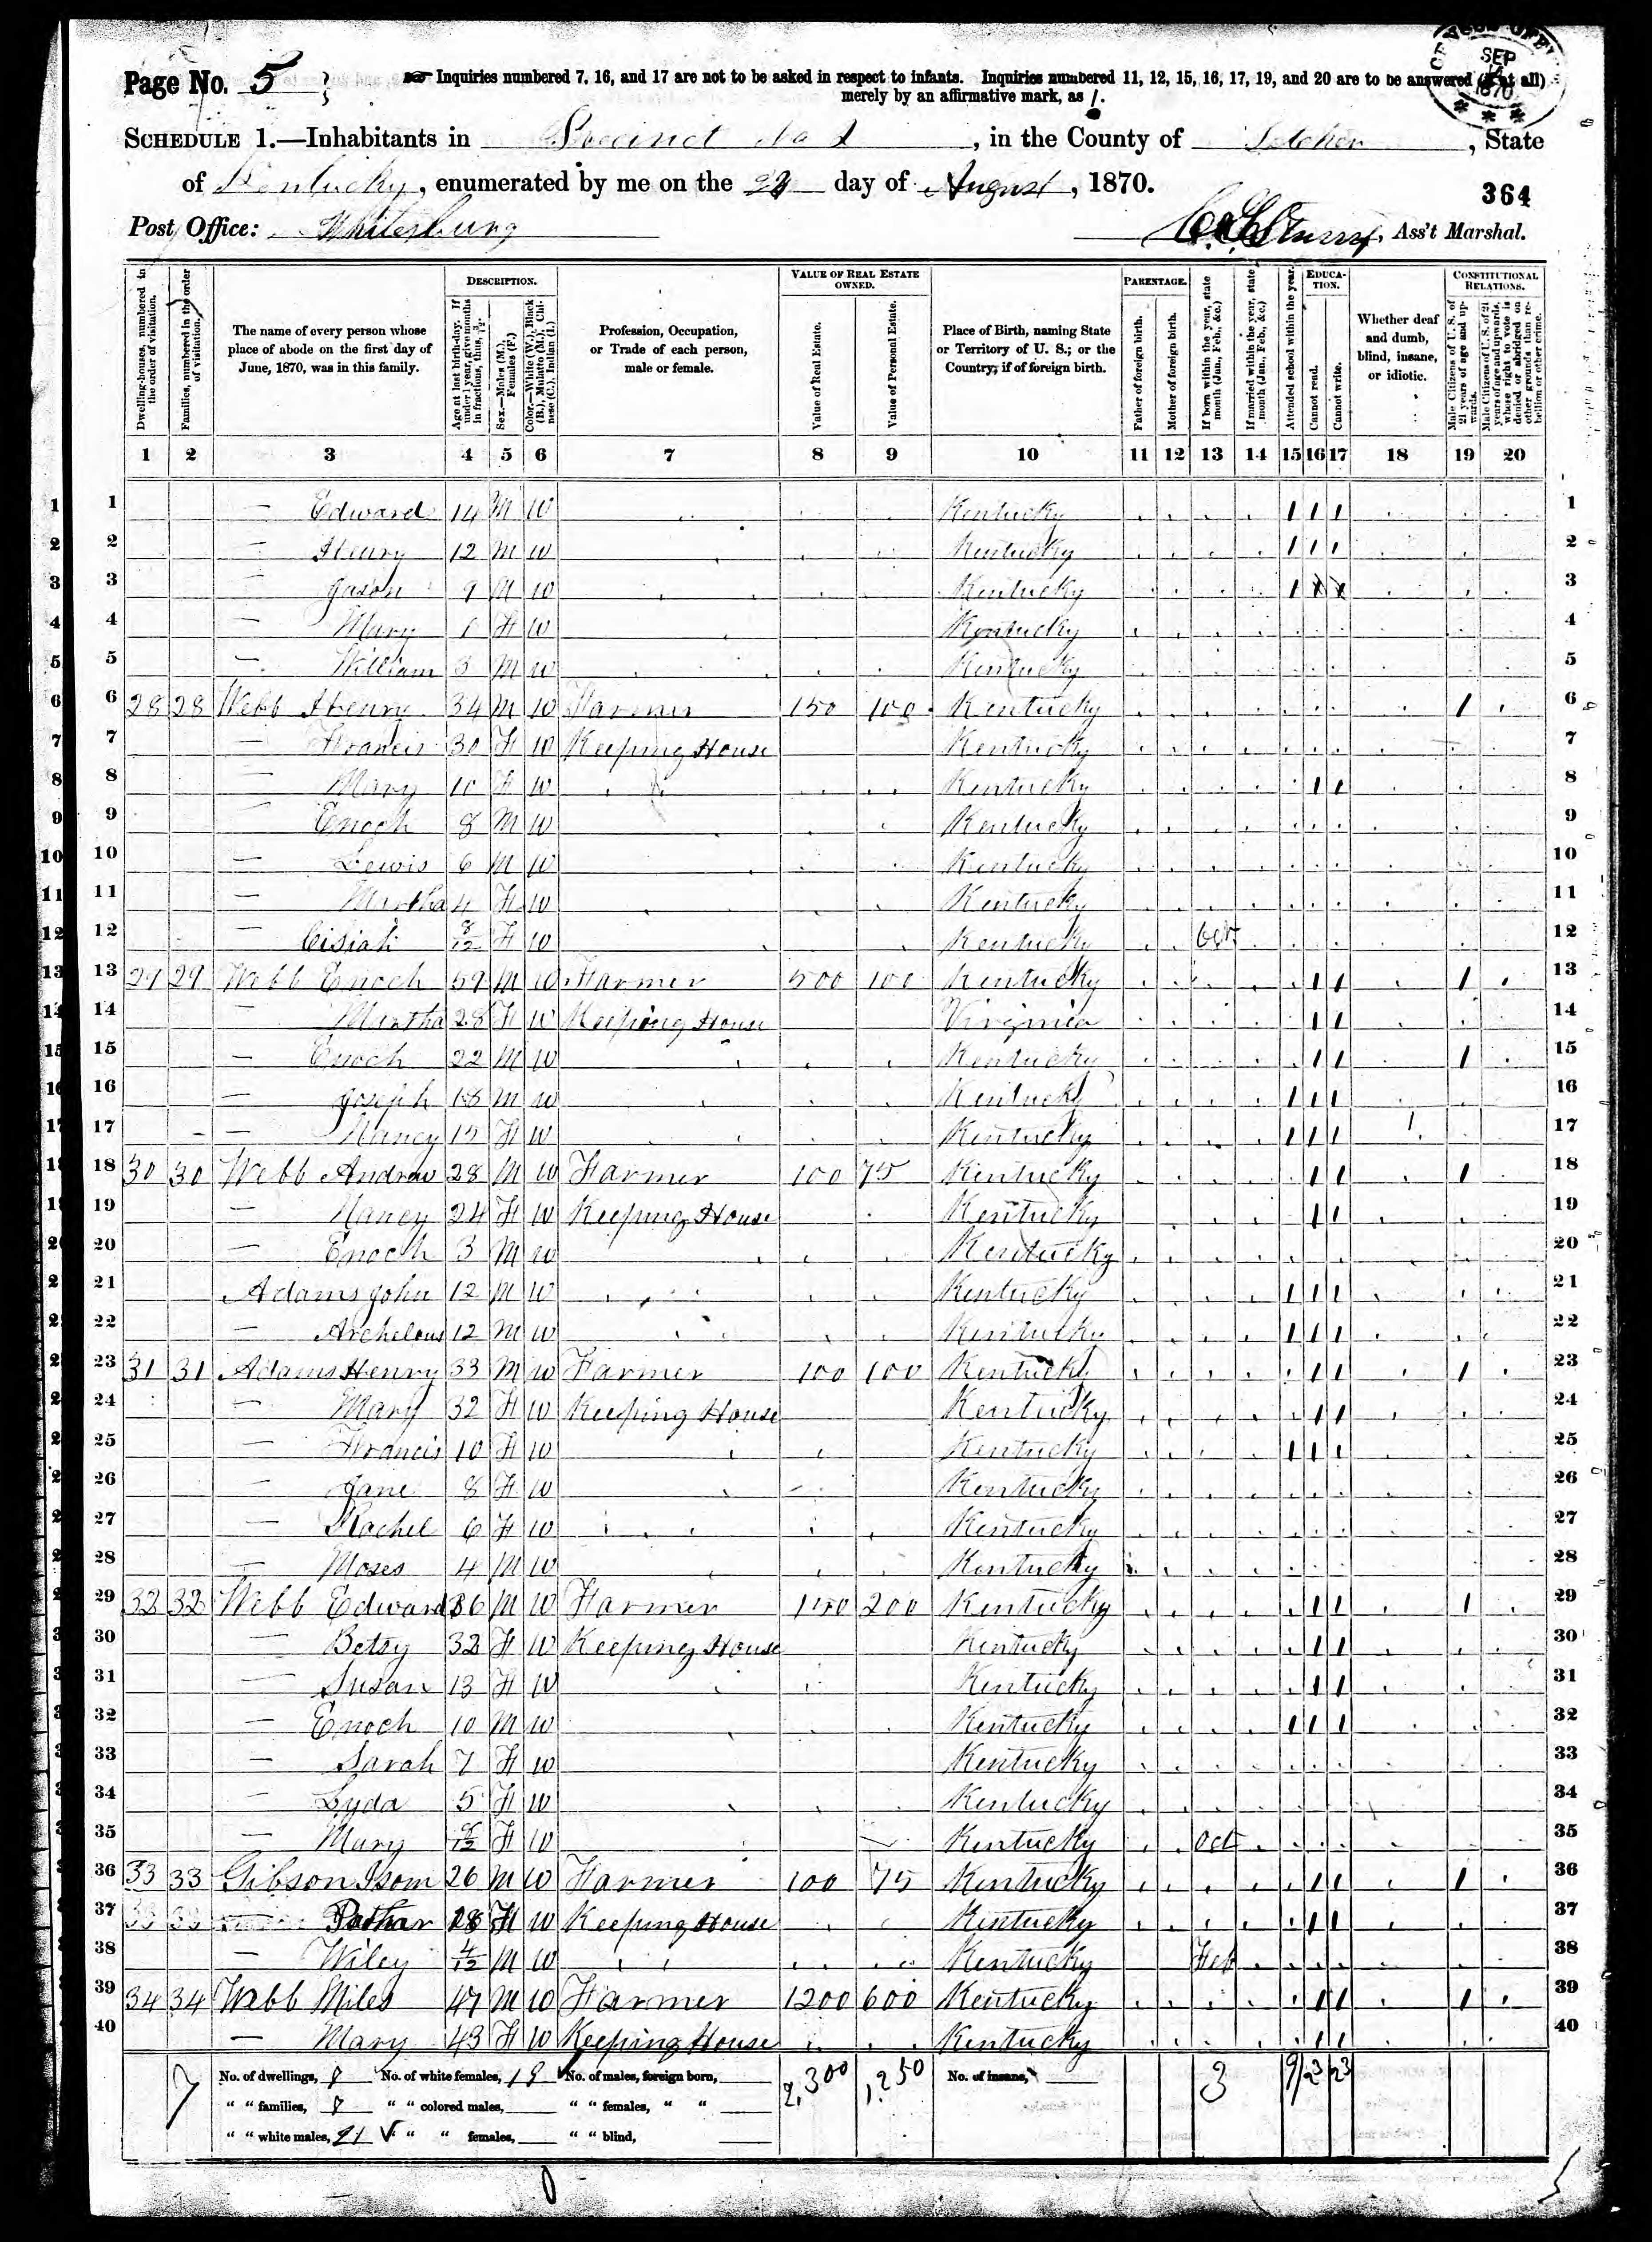 Page No. 5
Inquiries numbered 7, 16, and 17 are not to be asked in respect to infants. Inquiries numbered 11, 12, 15, 16, 17, 19, and 20 are to be answered (if at all)
merely by an affirmative mark, as /.
SEP 1870
SCHEDULE 1.—Inhabitants in Precinct No 1, in the County of Letcher, State
of Kentucky, enumerated by me on the day of August, 1870.
364
Post Office: Whitesburg
Ass't Marshal.
DESCRIPTION. VALUE OF REAL ESTATE OWNED. PARENTAGE. EDUCATION. CONSTITUTIONAL RELATIONS.
Dwelling-houses, numbered in the order of visitation.
Families, numbered in the order of visitation.
The name of every person whose place of abode on the first day of June, 1870, was in this family.
Age at last birth-day. If under 1 year, give months in fractions, thus, 3/12.
Sex.—Males (M.), Females (F.)
Color.—White (W.), Black (B.), Mulatto (M.), Chinese (C.), Indian (I.)
Profession, Occupation, or Trade of each person, male or female.
Value of Real Estate.
Value of Personal Estate.
Place of Birth, naming State or Territory of U. S.; or the Country, if of foreign birth.
Father of foreign birth.
Mother of foreign birth.
If born within the year, state month (Jan., Feb., &c.)
If married within the year, state month (Jan., Feb., &c.)
Attended school within the year.
Cannot read.
Cannot write.
Whether deaf and dumb, blind, insane, or idiotic.
Male Citizens of U. S. of 21 years of age and upwards.
Male Citizens of U. S. of 21 years of age and upwards, whose right to vote is denied or abridged on other grounds than rebellion or other crime.
1 2 3 4 5 6 7 8 9 10 11 12 13 14 15 16 17 18 19 20
1 — Edward 14 M W Kentucky / / / 1
2 — Henry 12 M W Kentucky / / / 2
3 — Jason 9 M W Kentucky / 3
4 — Mary F W Kentucky 4
5 — William 3 M W Kentucky 5
6 28 28 Webb Henry 34 M W Farmer 150 100 Kentucky / 6
7 — Francis 30 F W Keeping House Kentucky 7
8 — Mary 10 F W Kentucky / / 8
9 — Enoch 8 M W Kentucky 9
10 — Lewis 6 M W Kentucky 10
11 — Martha 4 F W Kentucky 11
12 — 8/12 F W Kentucky Oct 12
13 29 29 Webb Enoch 59 M W Farmer 500 100 Kentucky / / / 13
14 — Martha 28 F W Keeping House Virginia / / 14
15 — Enoch 22 M W Kentucky / / / 15
16 — Joseph 18 M W Kentucky / / / 16
17 — Nancy 15 F W Kentucky / / / / 17
18 30 30 Webb Andrew 28 M W Farmer 100 75 Kentucky / / / 18
19 — Nancy 24 F W Keeping House Kentucky / / 19
20 — Enoch 3 M W Kentucky 20
21 Adams John 12 M W Kentucky / / / 21
22 — Archelous 12 M W Kentucky / / / 22
23 31 31 Adams Henry 33 M W Farmer 100 100 Kentucky / / / 23
24 — Mary 32 F W Keeping House Kentucky / / 24
25 — Francis 10 F W Kentucky / / / 25
26 — Jane 8 F W Kentucky 26
27 — Rachel 6 F W Kentucky 27
28 — Moses 4 M W Kentucky 28
29 32 32 Webb Edward 36 M W Farmer 150 200 Kentucky / / / 29
30 — Betsy 32 F W Keeping House Kentucky / / 30
31 — Susan 13 F W Kentucky / / 31
32 — Enoch 10 M W Kentucky / / / 32
33 — Sarah 7 F W Kentucky 33
34 — Lyda 5 F W Kentucky 34
35 — Mary 8/12 F W Kentucky Oct 35
36 33 33 Gibson Isom 26 M W Farmer 100 75 Kentucky / / / 36
37 28 F W Keeping House Kentucky / / 37
38 — Wiley 4/12 M W Kentucky Feb 38
39 34 34 Webb Miles 47 M W Farmer 1200 600 Kentucky / / / 39
40 — Mary 43 F W Keeping House Kentucky / / 40
7 No. of dwellings, 8 No. of white females, 19 No. of males, foreign born, 2,300 1,250 No. of insane, 3 9 23 23
" " families, 8 " " colored males, " " females, " "
" " white males, 21 " " females, " " blind,